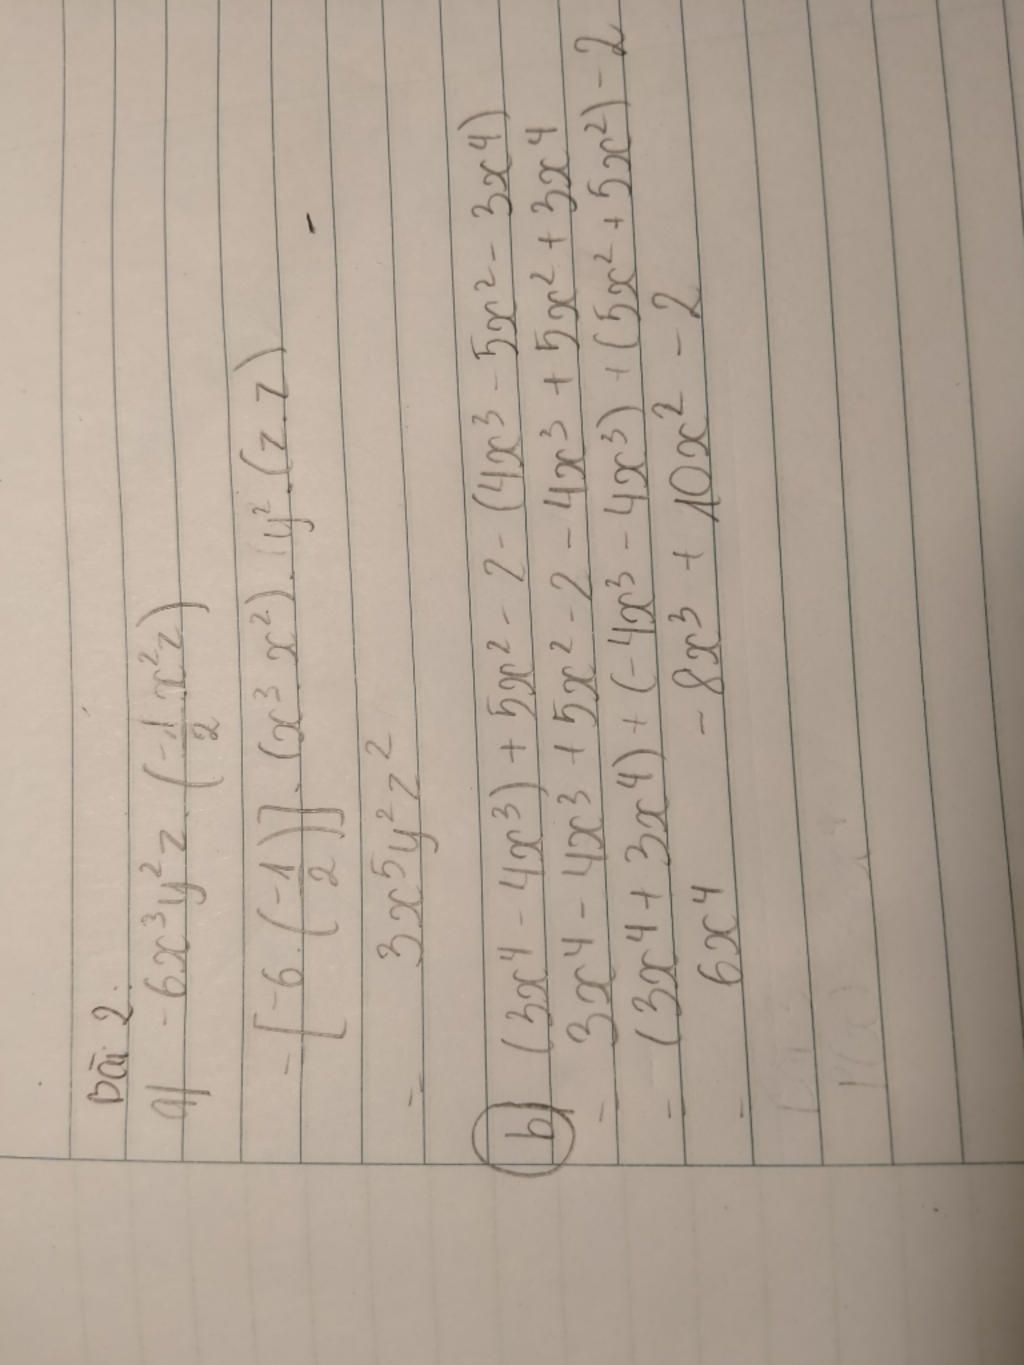 Bài 2.
a) -6x³y²z.(-1/2 x²z)
= [-6.(-1/2)].(x³.x²).(y².(z.z)
= 3x⁵y²z²
b) (3x⁴ - 4x³) + 5x² - 2 - (4x³ - 5x² - 3x⁴)
= 3x⁴ - 4x³ + 5x² - 2 - 4x³ + 5x² + 3x⁴
= (3x⁴ + 3x⁴) + (-4x³ - 4x³) + (5x² + 5x²) - 2
= 6x⁴ - 8x³ + 10x² - 2